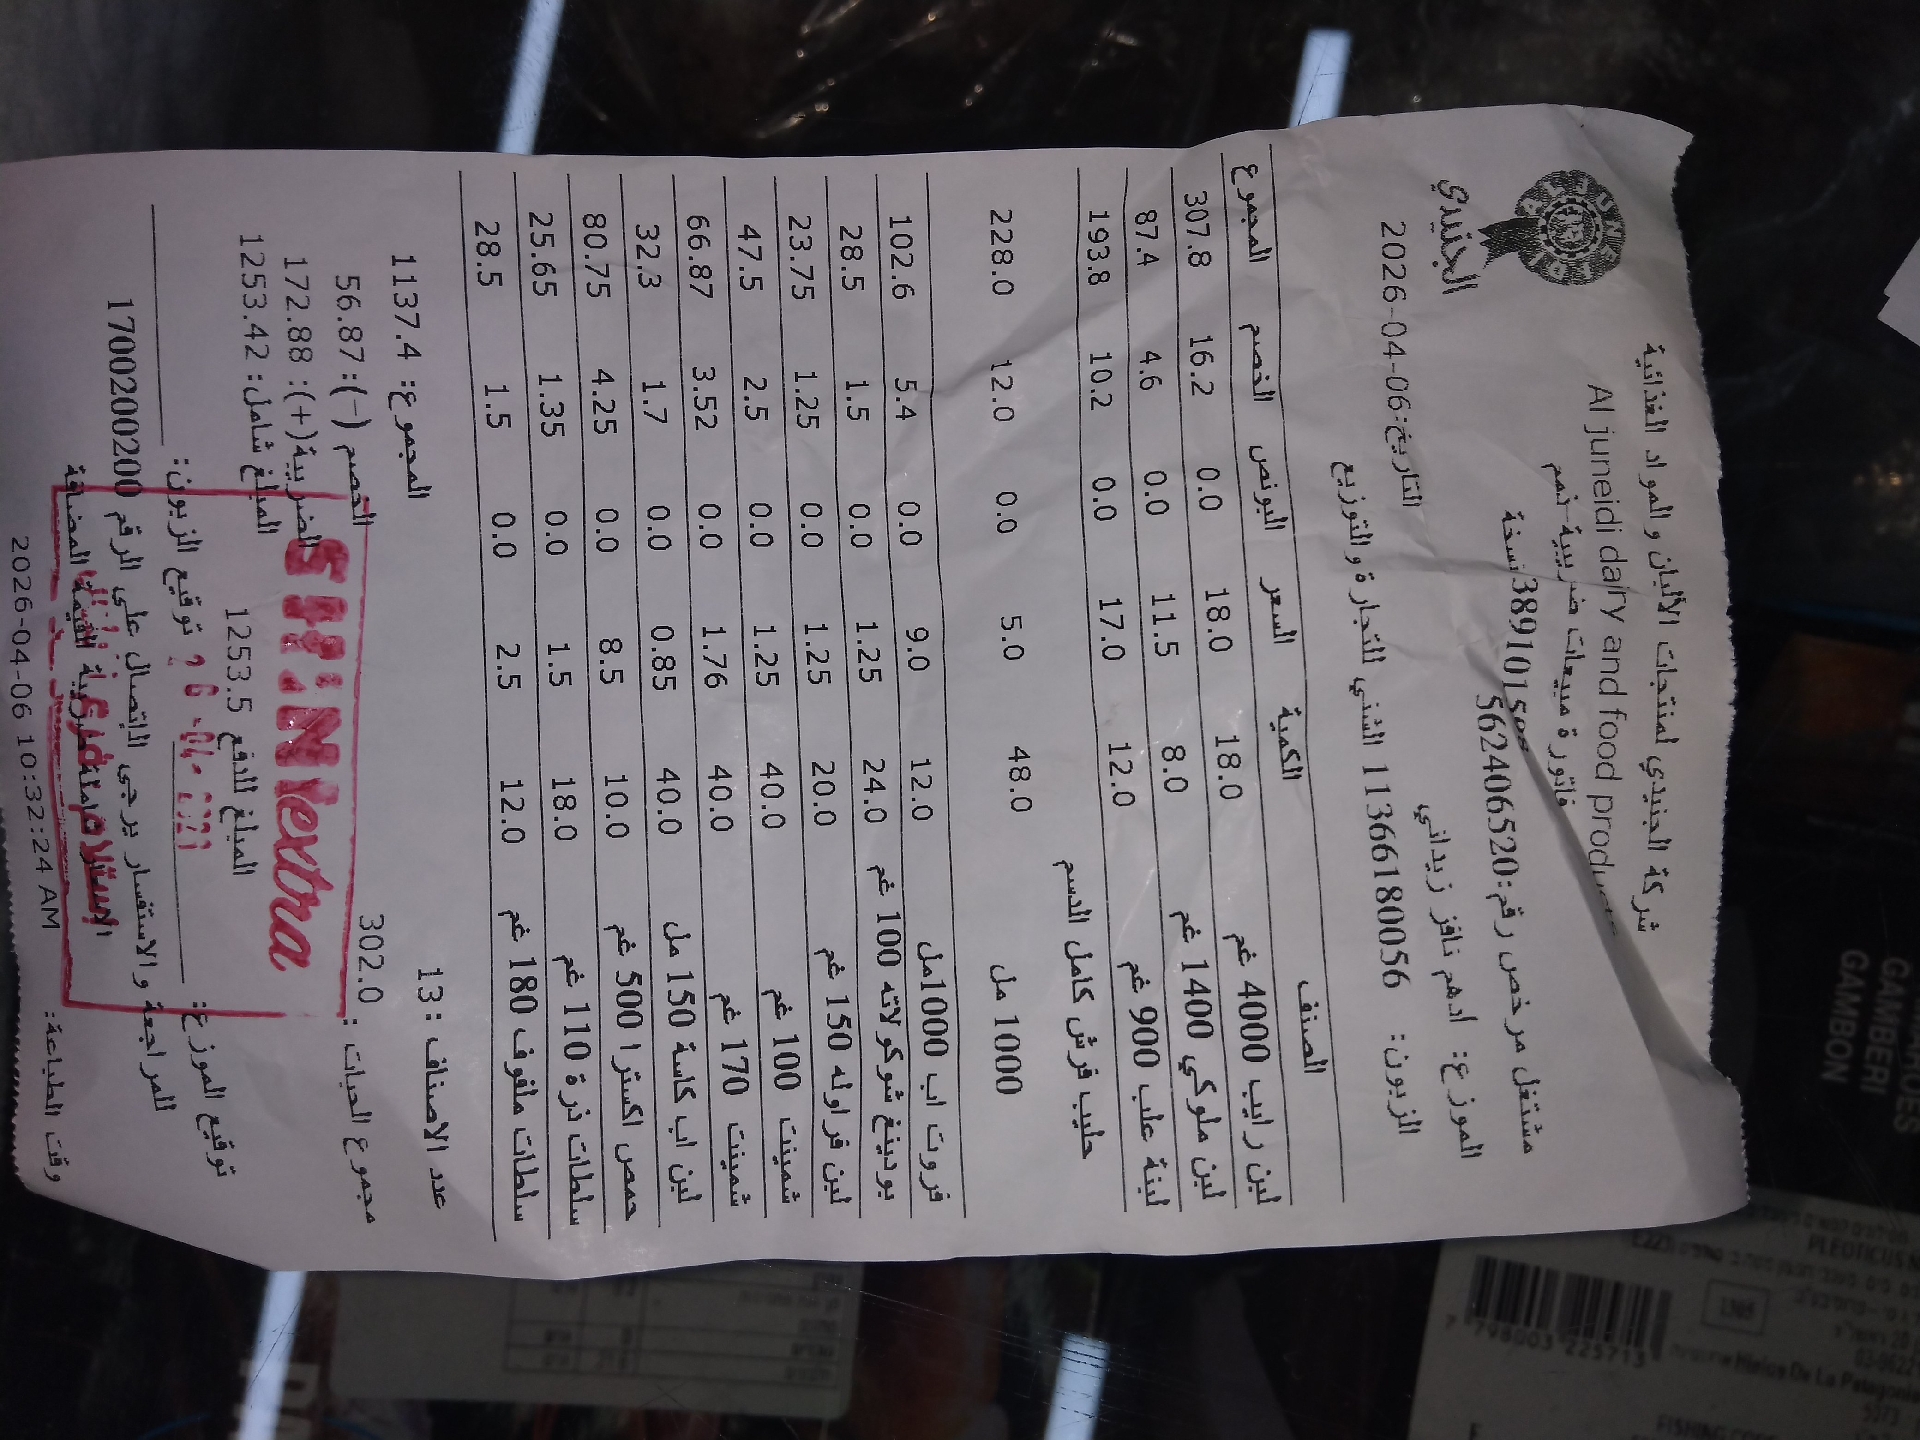 شركة الجنيدي لمنتجات الألبان والمواد الغذائية
Al juneidi dairy and food
فاتورة مبيعات ضريبية رقم
نسخة
مشتغل مرخص رقم:562406520
الجنيدي
الموزع: ادهم نافز زيداني
التاريخ:2026-04-06
الزبون: 1136618056 الشني للتجارة والتوزيع
الصنف الكمية السعر البونص الخصم المجموع
لبن رايب 4000 غم 18.0 18.0 0.0 16.2 307.8
لبن ملوكي 1400 غم 8.0 11.5 0.0 4.6 87.4
لبنة علب 900 غم 12.0 17.0 0.0 10.2 193.8
حليب فرش كامل الدسم
1000 مل 48.0 5.0 0.0 12.0 228.0
فروت اب 1000مل 12.0 9.0 0.0 5.4 102.6
بودينغ شوكولاته 100 غم 24.0 1.25 0.0 1.5 28.5
لبن فراوله 150 غم 20.0 1.25 0.0 1.25 23.75
شمينت 100 غم 40.0 1.25 0.0 2.5 47.5
شمينت 170 غم 40.0 1.76 0.0 3.52 66.87
لبن اب كاسة 150 مل 40.0 0.85 0.0 1.7 32.3
حمص اكسترا 500 غم 10.0 8.5 0.0 4.25 80.75
سلطات ذرة 110 غم 18.0 1.5 0.0 1.35 25.65
سلطات ملفوف 180 غم 12.0 2.5 0.0 1.5 28.5
عدد الاصناف :13 المجموع: 1137.4
مجموع الحبات : 302.0 الخصم (-): 56.87
الضريبة(+): 172.88
المبلغ شامل: 1253.42
المبلغ للدفع 1253.5
extra
توقيع الموزع: توقيع الزبون:
للمراجعة والاستفسار يرجى الاتصال على الرقم 1700200200
القيمة المضافة
وقت الطباعة: 2026-04-06 10:32:24 AM
GAMBERI
GAMBON
7 798003 225713